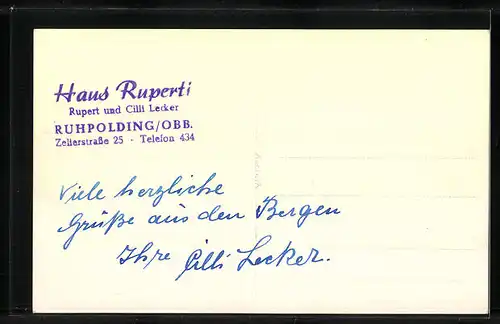 Haus Ruperti
Rupert und Cilli Lecker
RUHPOLDING/OBB.
Zellerstraße 25 - Telefon 434
Viele herzliche
Grüße aus den Bergen
Ihre Cilli Lecker.